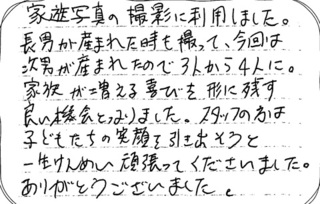 家族写真の撮影に利用しました。
長男が産まれた時も撮って、今回は
次男が産まれたので3人から4人に。
家族が増える喜びを形に残す
良い機会となりました。スタッフの方は
子どもたちの笑顔を引き出そうと
一生けんめい頑張ってくださいました。
ありがとうございました。